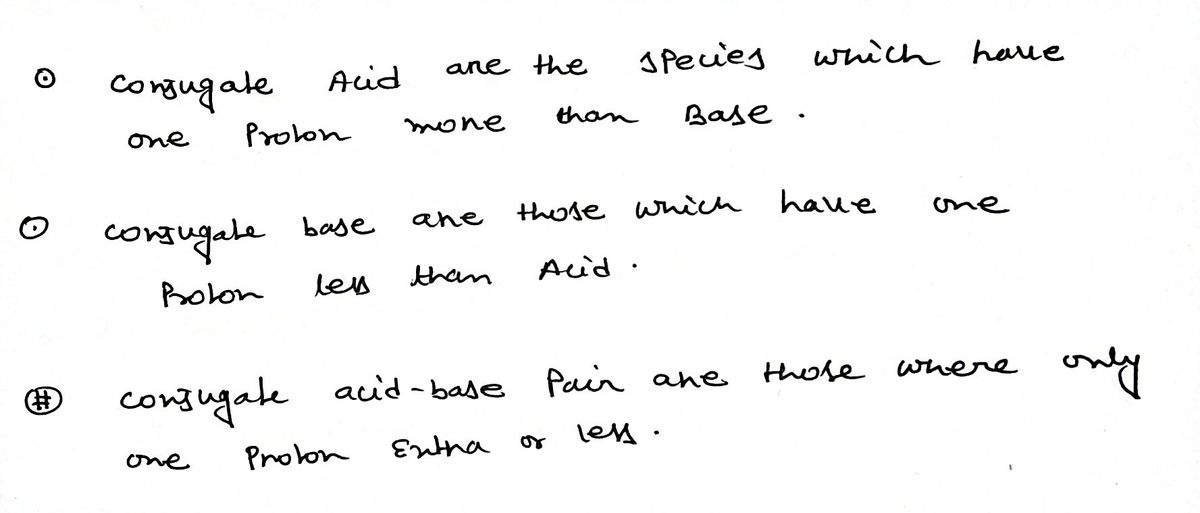 ⊙ conjugate Acid are the species which have
one Proton more than Base.
⊙ conjugate base are those which have one
Proton less than Acid.
# conjugate acid-base Pair are those where only
one Proton Extra or less.